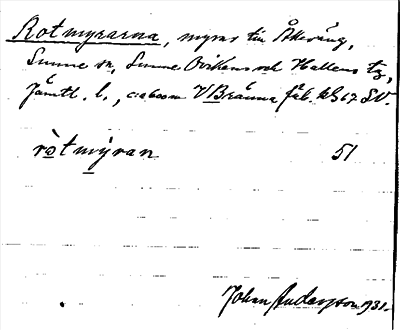 Rotmyrarna, myrar till Åkeräng,
Sunne sn, Sunne Ovikens och Hallens tg,
Jämtl. l., c:a 600 m V Bränna fäb. kbl 67 SV.
ròtmỳran 51
Johan Andersson 1931.